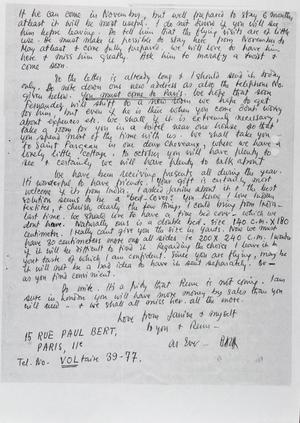 If he can come in November, but well prepared to stay 6 months
at least it will be most useful. I do not know if you will see
him before leaving. Do tell him that the flying visits are of little
use. He must make it possible to stay here from November to
May atleast & come fully prepared. We will love to have him
here & miss him greatly. Ask him to make a twist &
come soon.
So the letter is already long & I should send it today
only. Do note down our new address as also the telephone No.
given below. You must come to Paris. We hope that soon
Fernandez will shift to a new town we help to get
for him, but even if he is there when you come don't worry
about expenses etc. We shall if it is extremely necessary,
take a room for you in a hotel near our house so that
you spend most of the time with us. We shall take you
to Saint Fargeau in our deux Chevaux, where we have a
lovely little cottage. In October you will have plenty to
see & certainly we will have plenty to talk about
We have been receiving presents all during the year.
It's wonderful to have friends. Your gift is certainly most
welcome if it from India. I asked Janine about it & the best
solution seems to be a "bed-cover". You know, I love Indian
textiles, & clearly, clearly the few things I could bring from India
last time. We should love to have a fine bed cover which we
dont have. Naturally ours is a double bed. Size 140 c.m. x 180
centimetre. I really cant give you the size in yards. Now we must
have 30 centimetres more on all sides i.e. 200 x 240 c.m. wonder
if it will be difficult to find. Regarding the choice I leave it to
your taste of which I am confident. Since you are flying, may be
it will not be a bad idea to have it sent separately. Do —
as you find convenient.
Do write. It's a pity that Renu is not coming. I am
sure in London you will have more money by sales than you
will need — & we shall all miss her all the more.
Love from Janine & myself
to you & Renu —
as Ever —
15 RUE PAUL BERT,
PARIS, 11e
Tel. No- VOLtaire 39-77.